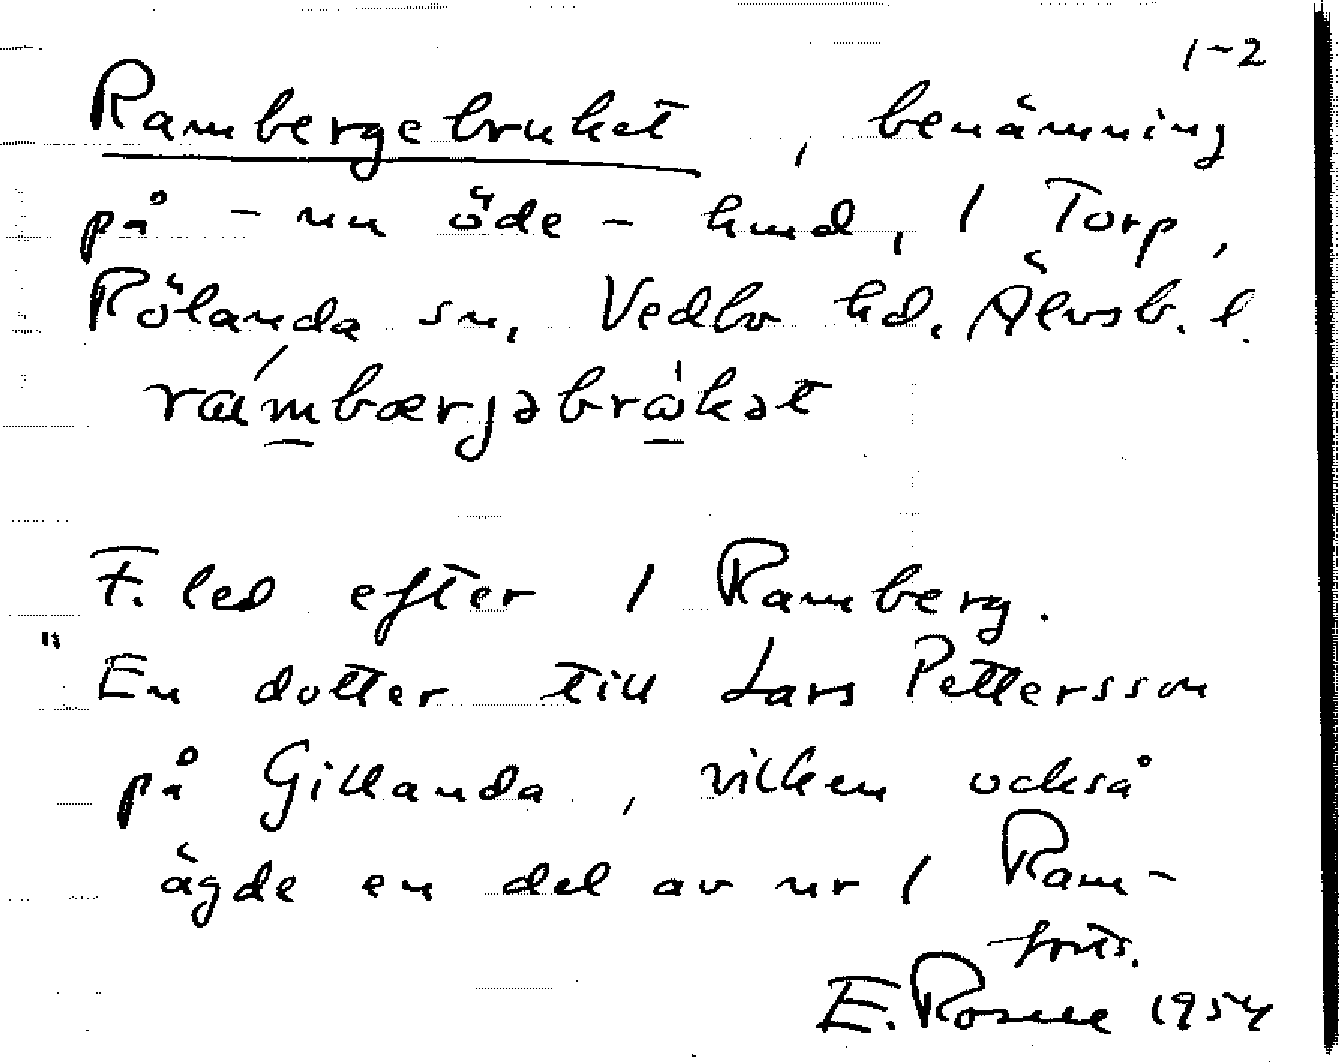 1-2
Rambergebruket, benämning
på - nu öde - hmd, 1 Torp,
Rölanda sn, Vedbo hd. Älvsb. l.
F. led efter 1 Ramberg.
"En dotter till Lars Pettersson
på Gillanda, vilken också
ägde en del av nr 1 Ram-
forts.
E. Rosell 1954